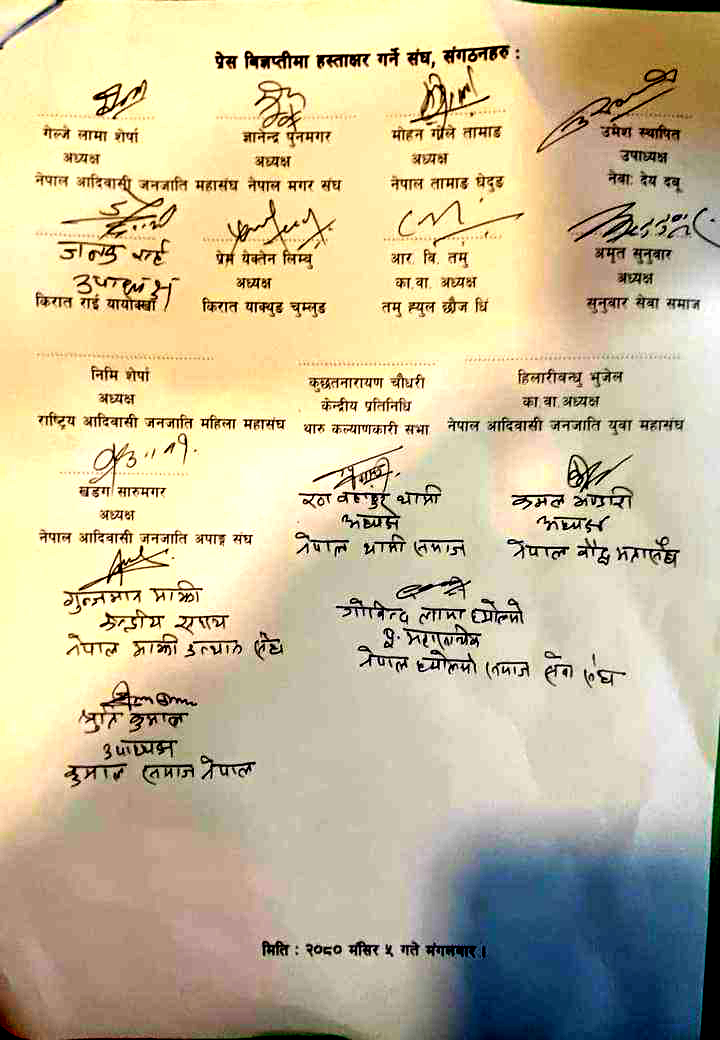 प्रेस विज्ञप्तीमा हस्ताक्षर गर्ने संघ, संगठनहरु :
गेल्जे लामा शेर्पा ज्ञानेन्द्र पुनमगर मोहन गोले तामाङ उमेश स्थापित
अध्यक्ष अध्यक्ष अध्यक्ष उपाध्यक्ष
नेपाल आदिवासी जनजाति महासंघ नेपाल मगर संघ नेपाल तामाङ घेदुङ नेवाः देय दबू
जनक राई प्रेम येक्तेन लिम्बु आर. वि. तमु अमृत सुनुवार
उपाध्यक्ष अध्यक्ष का.वा. अध्यक्ष अध्यक्ष
किरात राई यायोक्खा किरात याक्थुङ चुम्लुङ तमु ह्युल छोंज धिं सुनुवार सेवा समाज
निमि शेर्पा कुछतनारायण चौधरी हिलारीबन्धु भुजेल
अध्यक्ष केन्द्रीय प्रतिनिधि का.वा.अध्यक्ष
राष्ट्रिय आदिवासी जनजाति महिला महासंघ थारु कल्याणकारी सभा नेपाल आदिवासी जनजाति युवा महासंघ
खडग सारुमगर रण बहादुर थामी कमल भण्डारी
अध्यक्ष अध्यक्ष अध्यक्ष
नेपाल आदिवासी जनजाति अपाङ्ग संघ नेपाल थामी समाज नेपाल बौद्ध महासंघ
माझी गोविन्द लामा ह्योल्मो
केन्द्रीय
नेपाल माझी उत्थान संघ नेपाल ह्योल्मो समाज सेवा संघ
कुमाल
उपाध्यक्ष
कुमाल समाज नेपाल
मिति : २०८० मंसिर ५ गते मंगलबार ।